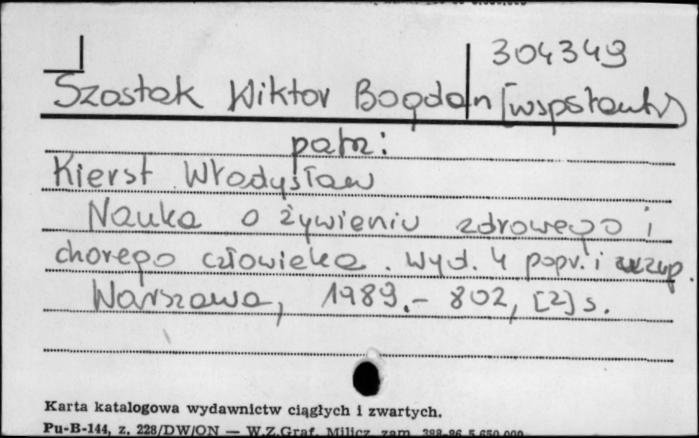 304349
Szostak Wiktor Bogdan [wspołaut.]
patrz:
Kierst Władysław
Nauka o żywieniu zdrowego i
chorego człowieka. Wyd. 4 popr. i uzup.
Warszawa, 1989.- 802, [2] s.
Karta katalogowa wydawnictw ciągłych i zwartych.
Pu-B-144, z. 228/DW/ON — W.Z.Graf. Milicz zam. 388-86 5.650.000